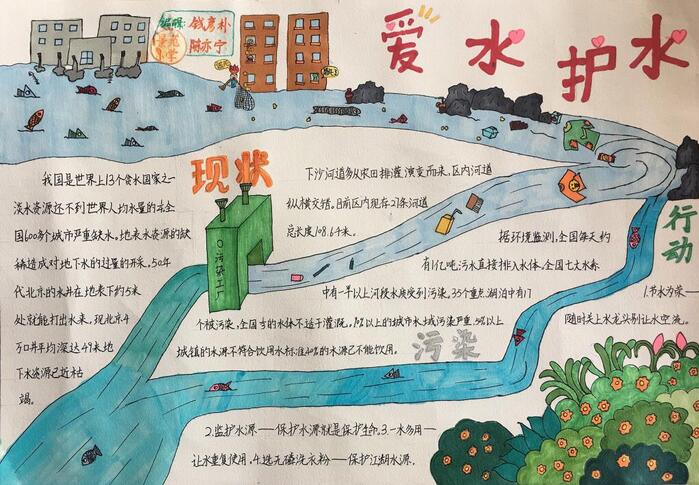 编辑: 钱彦朴
陈亦宁
爱水护水
现状
我国是世界上13个贫水国家之一
淡水资源还不到世界人均水量的
国600多个城市严重缺水。地表水资源的缺
稀造成对地下水的过量的开采，50年
代北京的水井在地表下约5米
处就能打出水来，现北京4
万口井平均深达49米地
下水资源已近枯
竭。
下沙河道多从农田排灌演变而来，区内河道
纵横交错。目前区内现在21条河道
总长度108.64千米。
污染工厂
据环境监测，全国每天约
有1亿吨污水直接排入水体。全国七大水系
中有一半以上河段水质受到污染。35个重点湖泊中有17
个被污染，全国的水体不适于灌溉。90%以上的城市水域污染严重，50%以上
城镇的水源不符合饮用水标准40%的水源已不能饮用。
污染
行动
1.节水为荣——
随时关上水龙头别让水空流。
2.监护水源——保护水源就是保护生命。3.一水多用——
让水重复使用。4.选无磷洗衣粉——保护江湖水源。